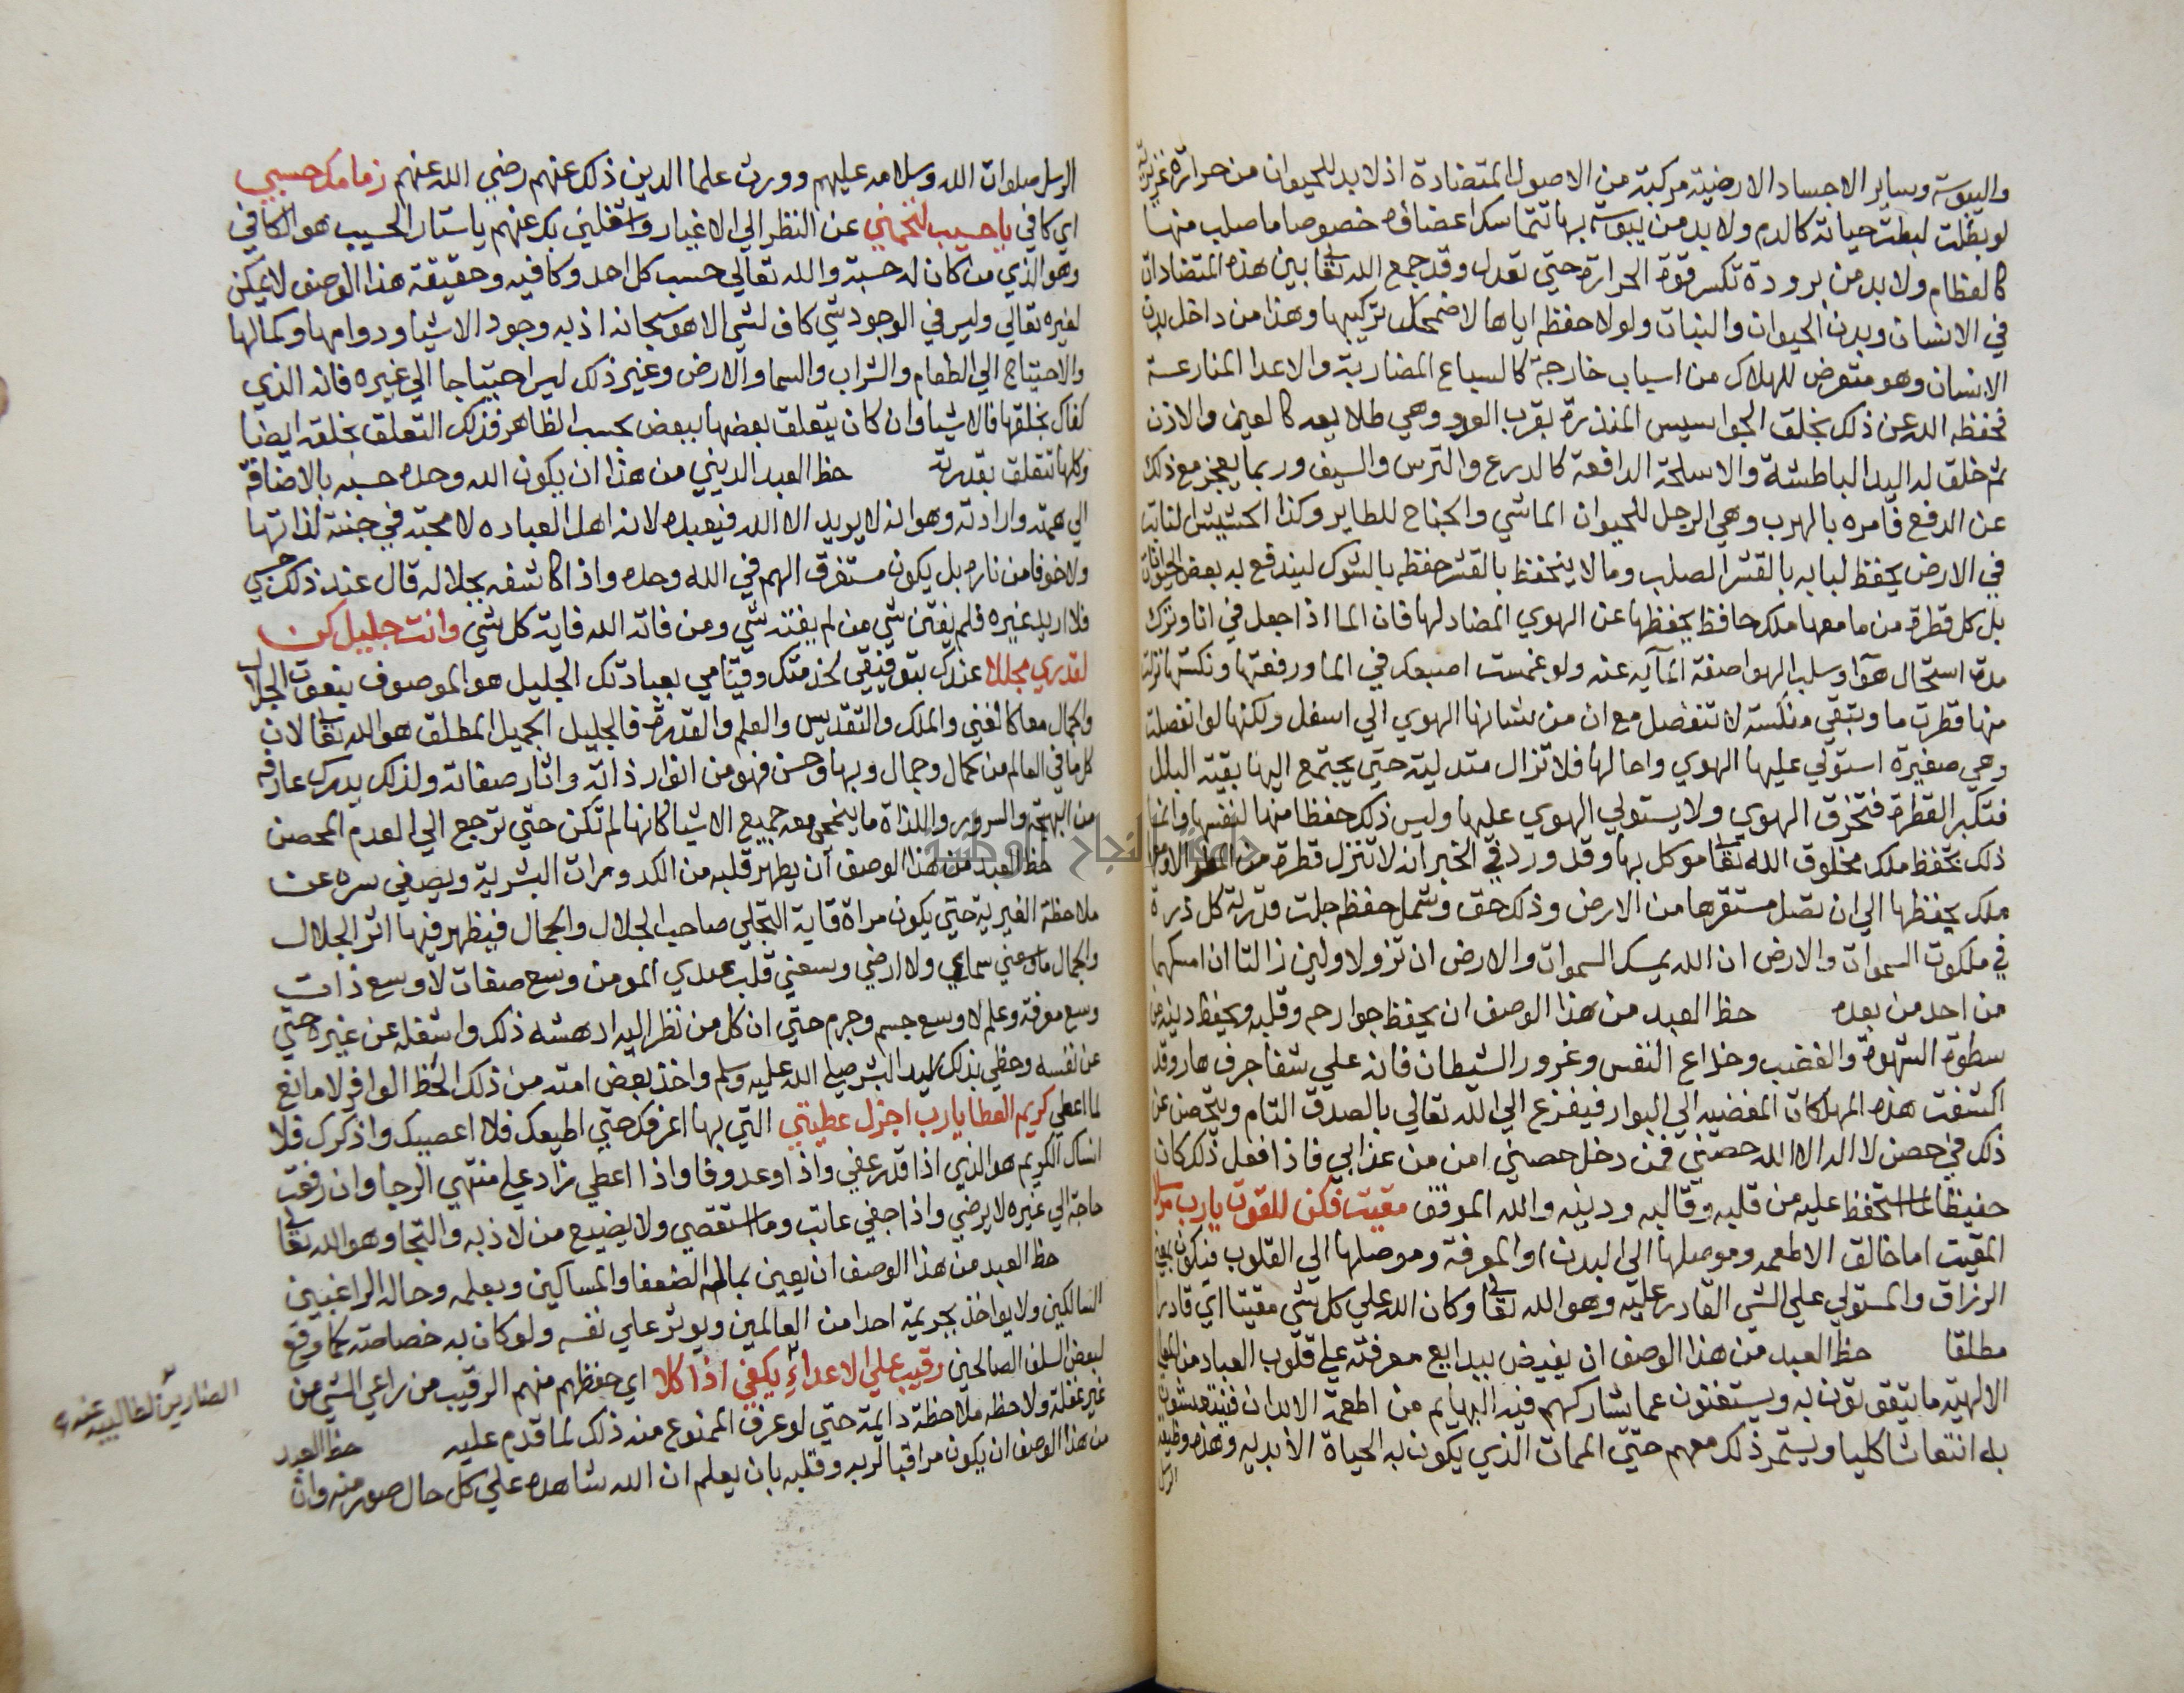 واليبوسة وساير الاجساد الارضية مركبة من الاصول المتضادة اذ لا بد للحيوان من حرارة غريزية
لو بطلت لبطلت حياته كالدم ولا بد من يبوسة بها تتماسك اعضاؤه خصوصا ما صلب منها
كالعظام ولا بد من برودة تكسر قوة الحرارة حتي تعدل وقد جمع الله تعا بين هذه المتضادات
في الانسان وبدن الحيوان والنبات ولولا حفظه اياها لاضمحل تركيبها وهذا من داخل بدن
الانسان وهو متعرض للهلاك من اسباب خارجة كالسباع الضارية والاعدا المنازعة
فحفظه الله عن ذلك بخلق الجواسيس المنذرة بقرب العدو وهي طلايعه كالعين والاذن
ثم خلق له اليد الباطشة والاسلحة الدافعة كالدرع والترس والسيف وربما يعجز مع ذلك
عن الدفع فامره بالهرب وهي الرجل للحيوان الماشي والجناح للطاير وكذا الحشيش النابت
في الارض يحفظ لبابه بالقشر الصلب وما لا ينحفظ بالقشر حفظه بالشوك ليندفع به بعض الحيوانات
بل كل قطرة من ما معها ملك حافظ يحفظها عن الهوي المضاد لها فان الما اذا جعل في انا وترك
مدة استحال هوآ وسلب الهوا صفة المآيه عنه ولو غمست اصبعك في الما ورفعتها ونكستها نزلت
منها قطرت ما وتبقي منكسة لا تنفصل مع ان من شانها الهوي الي اسفل ولكنها لو انفصلت
وهي صغيرة استولي عليها الهوي واحالها فلا تزال متدلية حتي يجتمع اليها بقية البلل
فتكبر القطرة فتخرق الهوي ولا يستولي الهوي عليها وليس ذلك حفظا منها لنفسها وانما
ذلك بحفظ ملك مخلوق الله تعا موكل بها وقد ورد في الخبر انه لا تنزل قطرة من المطر الا ومعها
ملك يحفظها الي ان تصل مستقرها من الارض وذلك حق وشمل حفظه جلت قدرته كل ذرة
في ملكوت السموات والارض ان الله يمسك السموات والارض ان تزولا ولين زالتا ان امسكهما
من احد من بعده حظ العبد من هذا الوصف ان يحفظ جوارحه وقلبه ويحفظ دينه عن
سطوة الشهوة والغضب وخداع النفس وغرور الشيطان فانه علي شفا جرف هار وقد
اكتنفت هذه المهلكات المفضيه الي البوار فيفزع الي الله تعالي بالصدق التام ويتحصن عن
ذلك في حصن لا اله الا الله حصني فمن دخل حصني امن من عذابي فاذا فعل ذلك كان
حفيظا لما استحفظ عليه من قلبه وقالبه ودينه والله الموفق مقيت فكن للقوت يارب
المقيت اما خالق الاطعمه وموصلها الي البدن او المعرفة وموصلها الي القلوب فيكون بمعني
الرزاق والمستولي علي الشي القادر عليه وهو الله تعا وكان الله علي كل شي مقيتا اي قادرا
مطلقا حظ العبد من هذا الوصف ان يفيض ببدايع معرفته علي قلوب العباد من
الالهية ما يتقوتون به ويستغنون عما يشاركهم فيه البهايم من اطعمة الابدان فينتعشون
به انتعاشا كليا ويستمر ذلك معهم حتي الممات الذي يكون به الحياة الابدية وهذه وظيفة
الرسل
الرسل صلوات الله وسلامه عليهم وورث علما الدين ذلك عنهم رضي الله عنهم زمامك حسبي
اي كافي يا حسيب لتحمني عن النظر الي الاغيار واشغلني بك عنهم يا ستار الحسيب هو الكافي
وهو الذي من كان له حسبه والله تعالي حسب كل احد وكافيه وحقيقة هذا الوصف لا يمكن
لغيره تعالي وليس في الوجود شي كاف لشي الا هو سبحانه اذ به وجود الاشيا ودوامها وكمالها
والاحتياج الي الطعام والشراب والسما والارض وغير ذلك ليس احتياجا الي غيره فانه الذي
كفاك بخلقها فالاشيا وان كان يتعلق بعضها ببعض بحسب الظاهر فذلك التعلق بخلقه ايضا
وكلها تتعلق بقدرته حظ العبد الديني من هذا ان يكون الله وحده حسبه بالاضافة
الي همته وارادته وهو انه لا يريد الا الله فيعبده لانه اهل العباده لا محبة في جنته لذاتها
ولا خوفا من ناره بل يكون مستغرق الهم في الله وحده واذا كاشفه بجلاله قال عند ذلك حسبي
فلا اريد غيره فلم يفتن شي من لم يفته شي ومن فاته الله فاته كل شي وانت جليل كن
لقدري مجللا عندك بتوفيقي لخدمتك وقيامي بعبادتك الجليل هو الموصوف بنعوت الجلال
والجمال معا كالغني والملك والتقديس والعلم والقدرة فالجليل الجميل المطلق هو الله تعا لان
كل ما في العالم من كمال وجمال وبها وحسن فهو من انوار ذاته واثار صفاته ولذلك يدرك عارفه
من البهجة والسرور واللذة ما ينمحي معه جميع الاشيا كانها لم تكن حتي ترجع الي العدم المحض
حظ العبد من هذا الوصف ان يطهر قلبه من الكدورات البشرية ويصفي سره عن
ملاحظة الغيرية حتي يكون مراة قاية التجلي صاحب الجلال والجمال فيظهر فيها اثر الجلال
والجمال ما وسعني سمائي ولا ارضي وسعني قلب عبدي المومن وسع صفات لا وسع ذات
وسع معرفة وعلم لا وسع جسم وجرم حتي ان كل من نظر اليه ادهشه ذلك واشغله عن غيره حتي
عن نفسه وحظي بذلك سيد البشر صلي الله عليه وسلم واخذ بعض امته من ذلك الحظ الوافر لا مانع
لما اعطي كريم العطا يارب اجزل عطيتي التي بها اعرفك حتي اطيعك فلا اعصيك واذكرك فلا
انساك الكريم هو الذي اذا قدر عفي واذا وعد وفا واذا اعطي زاد علي منتهي الرجا وان رفعت
حاجة الي غيره لا يرضي واذا جفي عاتب وما استقصي ولا يضيع من لاذ به والتجا وهو الله تعا
حظ العبد من هذا الوصف ان يعين بماله الضعفا والمساكين وبعلمه وحاله الراغبين
السالكين ولا يواخذ بجريمة احدا من العالمين ويوثر علي نفسه ولو كان به خصاصة كما وقع
لبعض السلف الصالحين رقيب علي الاعداء يكفي اذا كلا اي حفظهم منهم الرقيب من راعي الشي من
غير غفلة ولاحظه ملاحظة دايمة حتي لو عرف الممنوع منه ذلك لما قدم عليه حظ العبد
من هذا الوصف ان يكون مراقبا لربه وقلبه بان يعلم ان الله شاهده علي كل حال